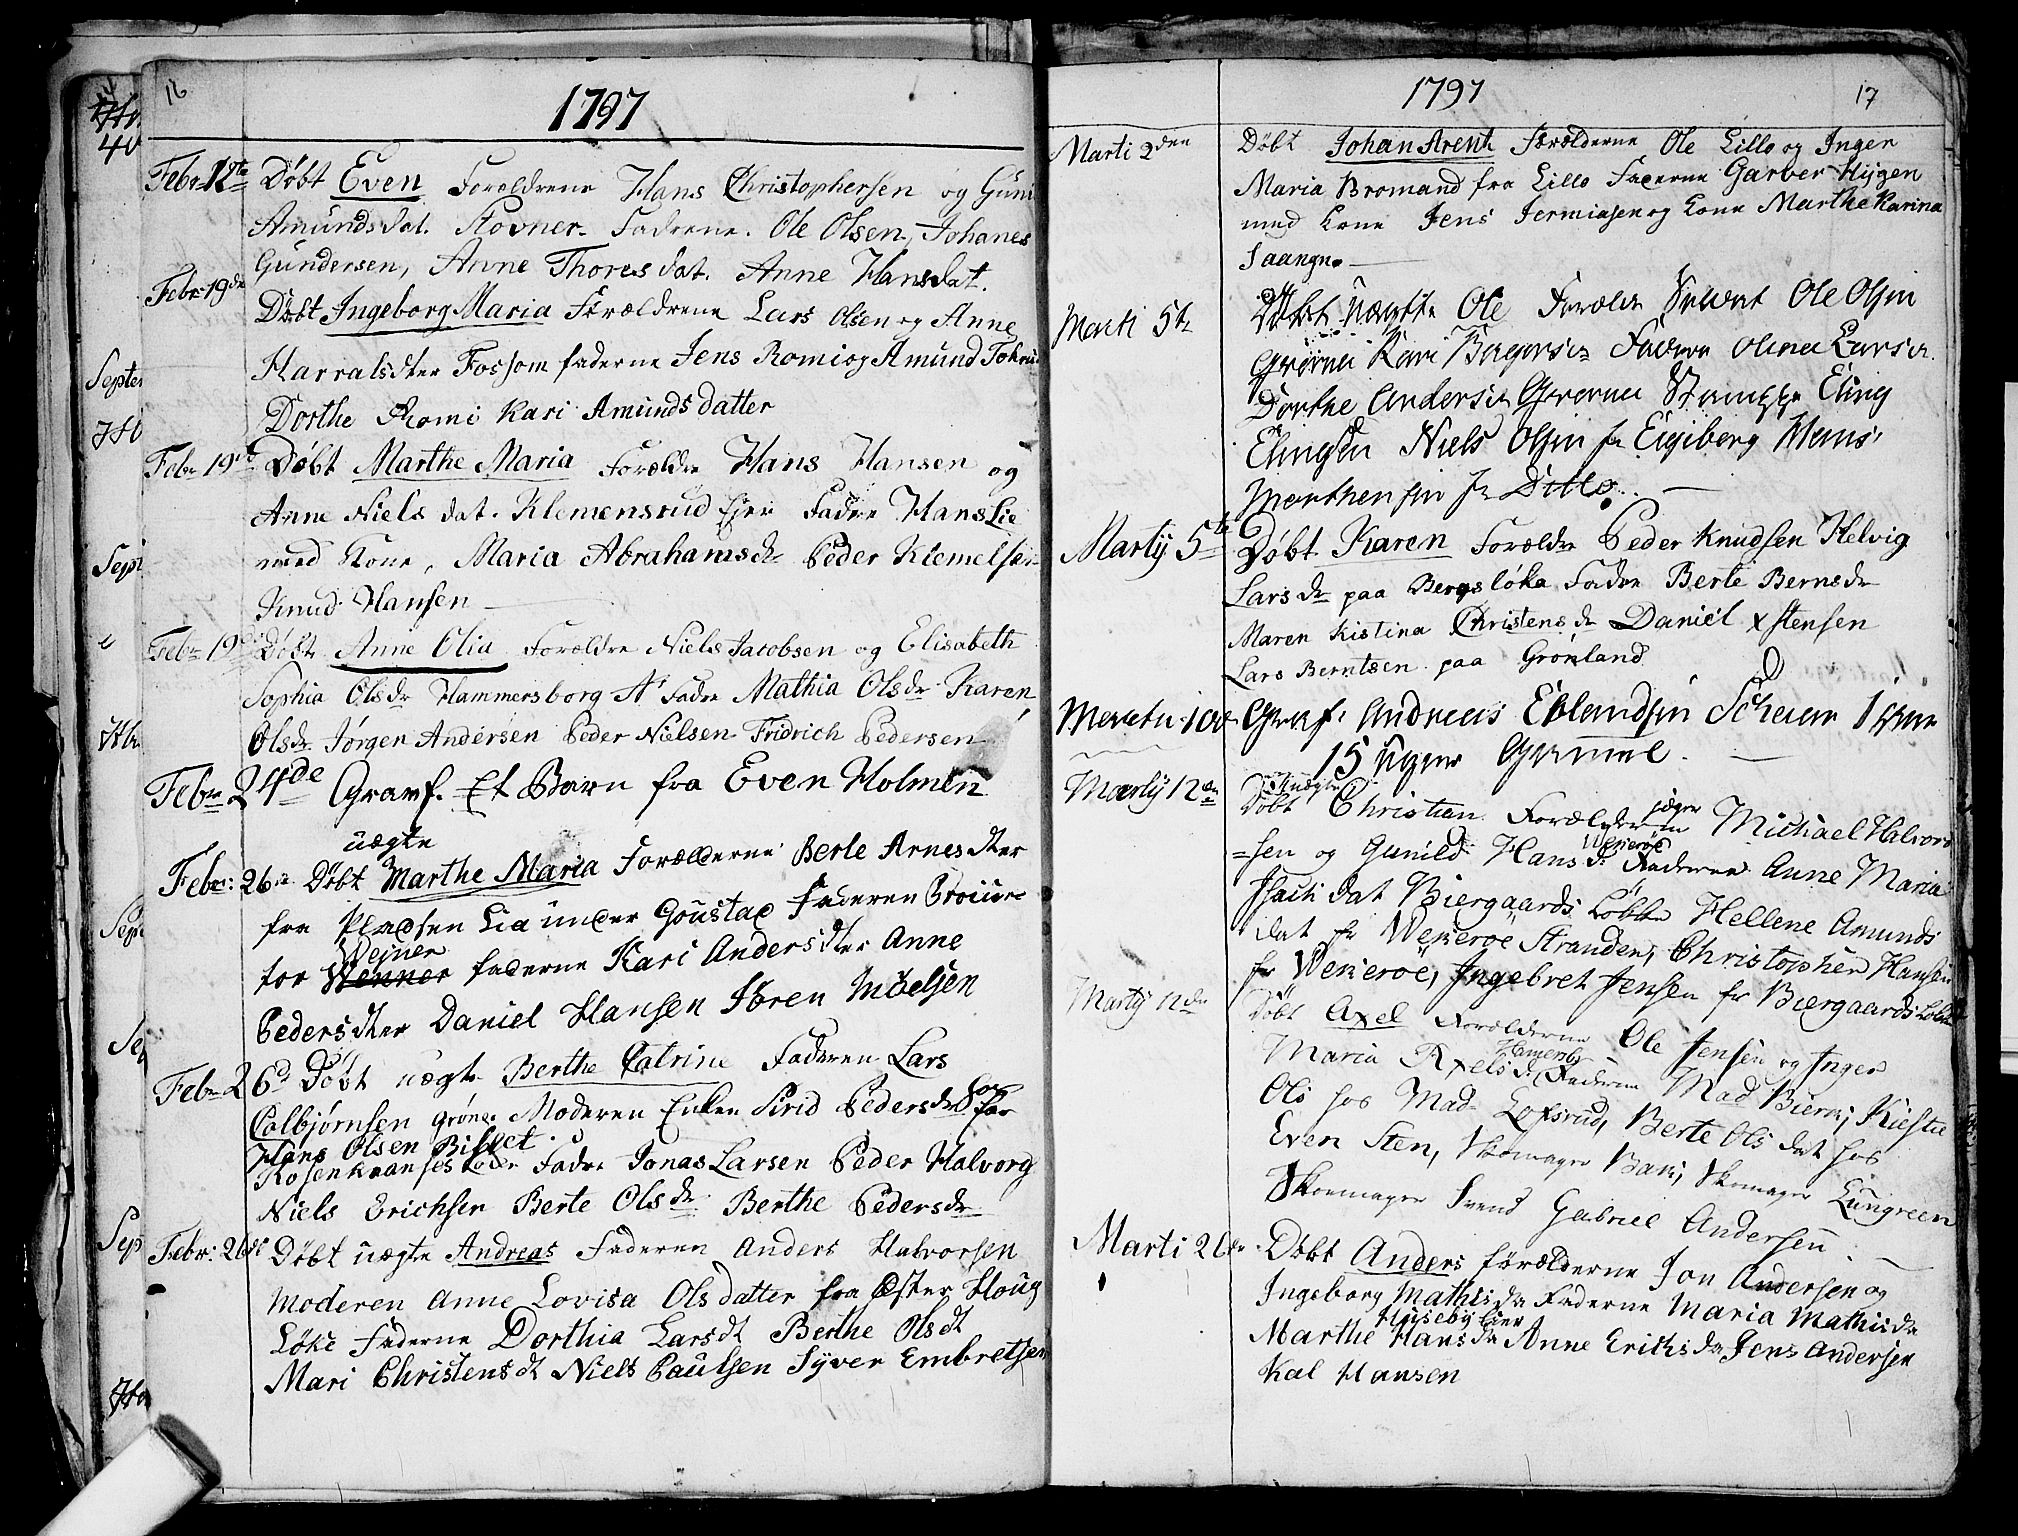 16
1797
Febr. 12te Døbt Even Foreldrene Hans Christophersen og Gun
Amundsdat. Stovner Fadrene. Ole Olsen, Johanes
Gundersen, Anne Thoresdat. Anne Hansdat.
Febr: 19de
Døbt Ingeborg Maria Forældrene Lars Olsen og Anne
Harralsdter Fossom faderne Jens Romi og Amund
Dorthe Romi Kari Amundsdatter
Febr 19de Døbt Marthe Maria Forældre Hans Hansen og
Anne Niels dat. Klemensrud Eier Fadre Hans Lie
med Kone, Maria Abrahamsdr Peder Kiemelsen
Knud Hansen
Febr 19de Døbt Anne Olia Forældre Niels Jacobsen og Elisabeth
Sophia Olsdr Hammersborg Fadre Mathia Olsdr Karen
Olsdr Jørgen Andersen Peder Nielsen Fridrich Pedersen
Febr 24de Gravf. Et Barn fra Even Holmen
uægte
Febr: 26de Døbt Marthe Maria Forælderne Berte Arnesdter
fra Pladsen Lia under Goustad Faderen
Wejner
tor Wenner faderne Kari Andersdter Anne
Pedersdter Daniel Hansen Sören Möelsen
Febr 26de Døbt uægte Berthe Catrine Faderen Lars
Colbjørnsen Grøner Moderen Enken Sirid Pedersdr
Hans Olsen Bislet
Rosenkranses Løcke Fadre Jonas Larsen Peder Halvorg
Niels Erichsen Berte Olsdr Berthe Pedersdr
Febr: 26de Døbt uægte Andreas Faderen Anders Halvorsen
Moderen Anne Lovisa Olsdatter fra Øster Houg
Løke Faderne Dorthia Larsdt Berthe Olsdt
Mari Christensdt Niels Paulsen Syver Embretsen
1797
17
Marti 2den Døbt Johan Arent Forælderne Ole Lillo og Inger
Maria Bromand fra Lillo Faderne Garver Hygen
med Kone Jens Jermiasen og Kone Marthe Karina
Saangn
Marti 5te Døbt uægte Ole Forældr Ole Olsen
Kari Fadrene Larsdr
Dorthe Andersdr Stampe Eling
Elingsen Niels Olsen fr Eigiberg Hans
Marthensen fr Ditto.
Martij 5te Døbt Karen Forældre Peder Knudsen Helvig
Larsdr paa Bergsløka Fadre Berte Bernsdr
Maren Kistina Christensdr Daniel Xstensen
Lars Berntsen paa Grønland
10de Gravf. Andreas Erlandsen 1 aar
15 uger Gammel.
Martij 12de
Døbt Christian Forælderne jæger Michael Halvor
=sen og Gunild Hansd: Wækerøe Faderne Anne Maria
Isach dat Biergaards Løkke Hellene Amunds
dat fr Wekerøe Stranden, Christopher Hansen
fr Wekerøe, Ingebret Jensen fr Biergaards Løke
Martij 12de Døbt Axel Forælderne Ole Jensen og Inger
Maria Axelsd: Faderne Mad Bierk; Kiestie
Ols hos Mad Lofsrud, Berte Ols dat hos
Even Sten, Skomager Bak; Skomager Lungreen
Skoemager Svend Gabriel Andersen
Marti 26de Døbt Anders förælderne Jon Andersen og
Ingeborg Mathisda Faderne Maria Mathisda
Huseby Eier
Marthe Hansda Anne Erichsda Jens Andersen
Kal Hansen